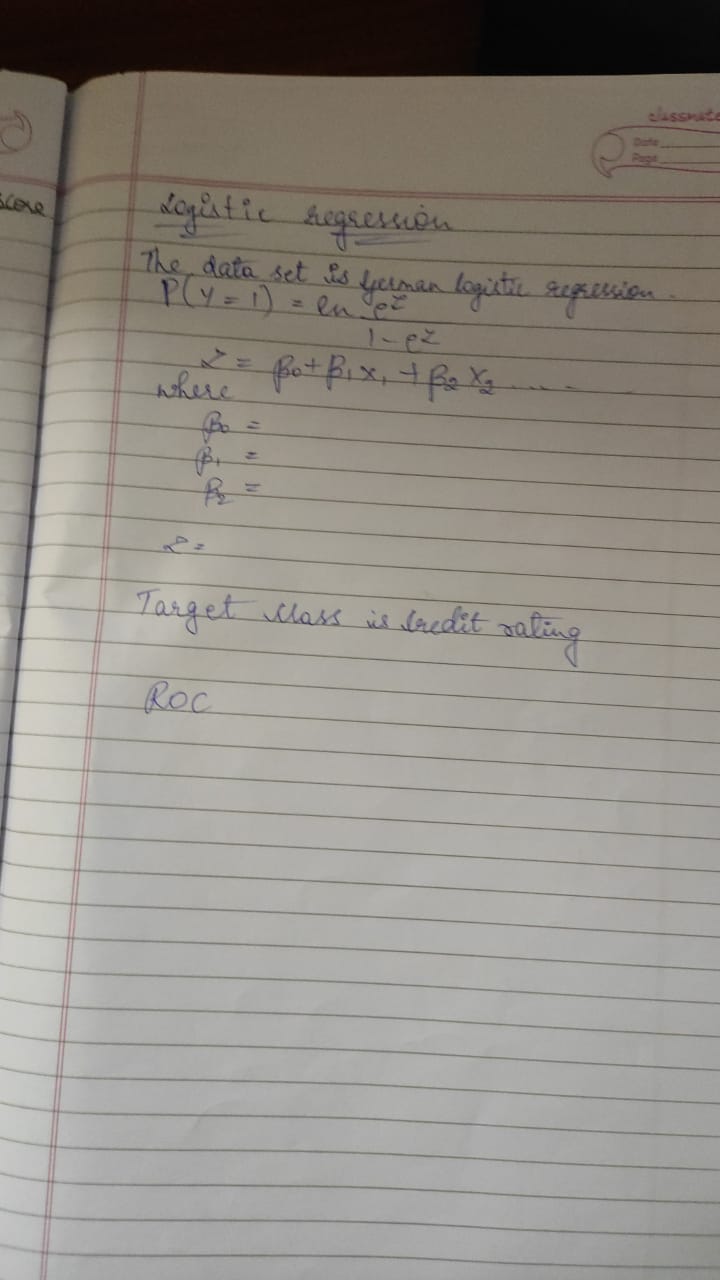 classmate
Date
Page
score
Logistic regression
The data set is German logistic regression.
P(Y=1) = ln e^z
1-e^z
Z = β0 + β1 x1 + β2 X2 .....
where
β0 =
β1 =
β2 =
Z =
Target class is credit rating
ROC